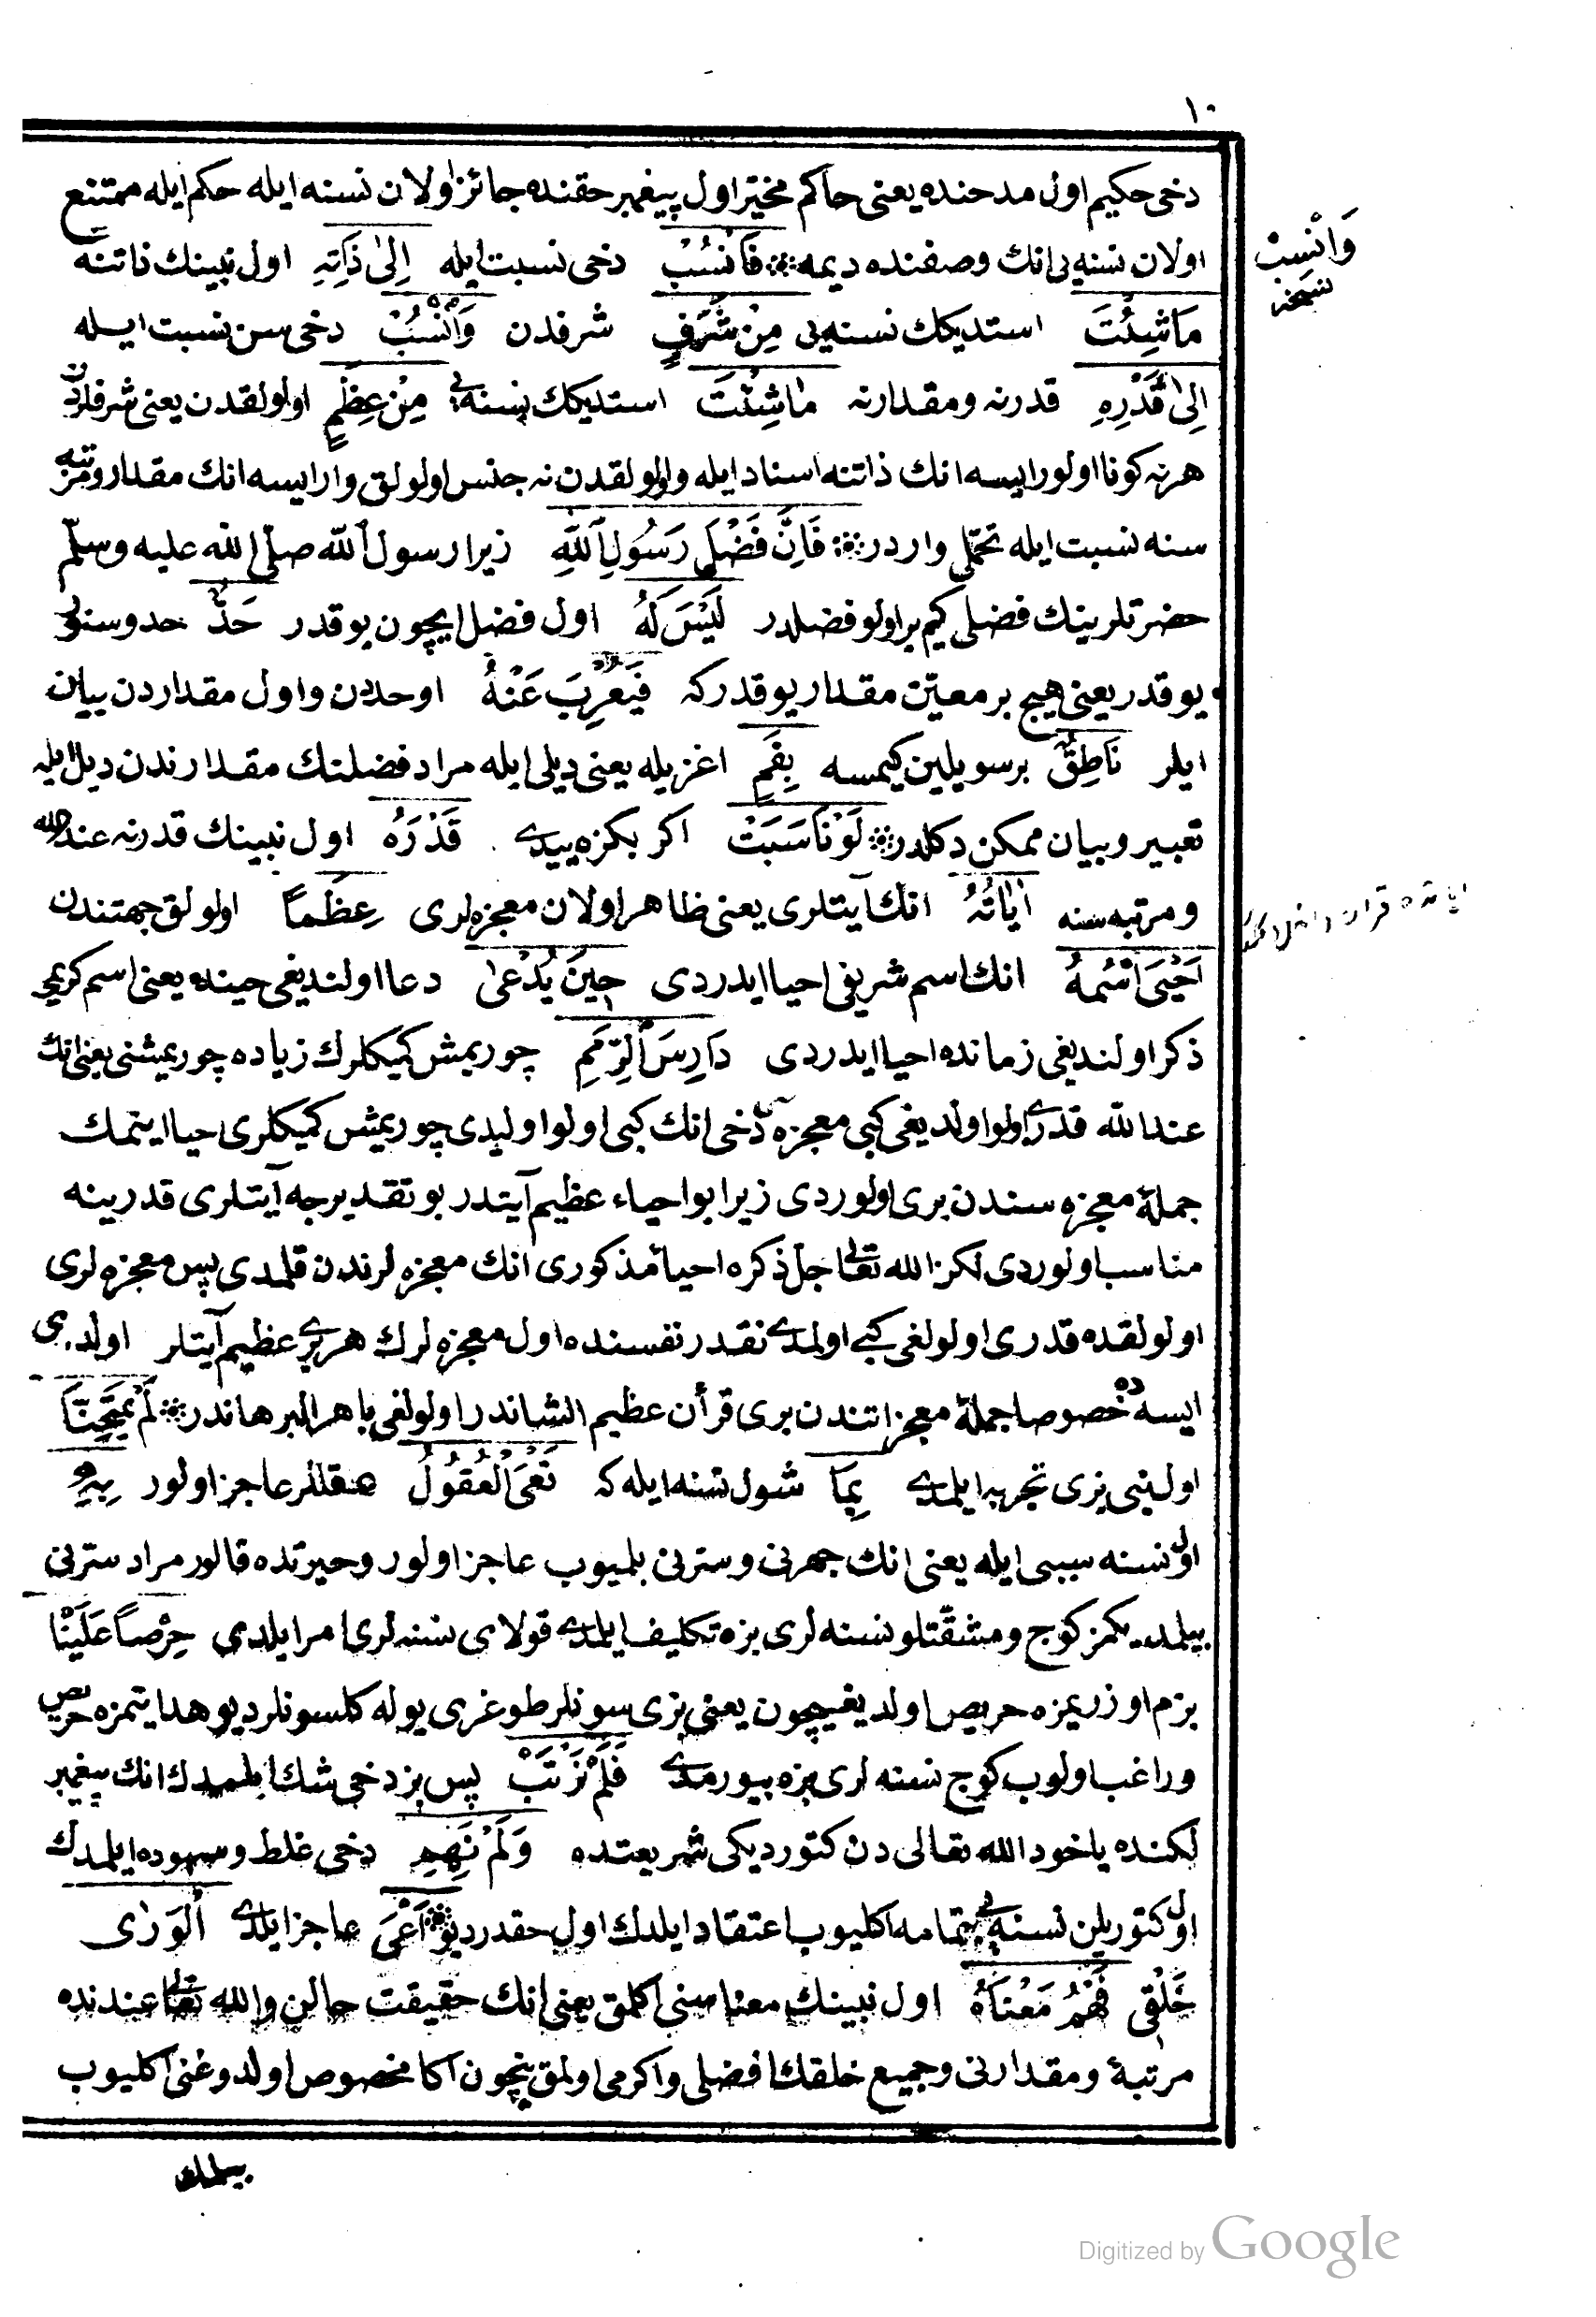 ١٠
دخى حكيم اول مدحنده يعنى حاكم مخيّر اول پيغمبر حقنده جائز اولان نسنه ايله حكم ايله ممتنع
اولان نسنه يى انك وصفنده ديمه فَانْسُبْ دخى نسبت ايله اِلىٰ ذَاتِهِ اول نبينك ذاتنه
وَانْسِبْ
نسخه
مَاشِئْتَ استديكك نسنه يى مِنْ شَرَفٍ شرفدن وَانْسُبْ دخى سن نسبت ايله
اِلىٰ قَدْرِهِ قدرنه ومقدارنه مَاشِئْتَ استديكك نسنه يى مِنْ عِظَمٍ اولولقدن يعنى شرفلردن
هرنه كونا اولور ايسه انك ذاتنه اسناد ايله واولولقدن نه جنس اولولق وار ايسه انك مقدار ومرتبه
سنه نسبت ايله تحمّلى واردر فَاِنَّ فَضْلَ رَسُولِ ٱللّٰهِ زيرا رسول ٱللّٰه صلّى اللّٰه عليه وسلّم
حضرتلرينك فضلى كيم بر اولو فضلدر لَيْسَ لَهُ اول فضل ايچون يوقدر حَدٌّ حد وسنورى
يوقدر يعنى هيچ بر معيّن مقدار يوقدركه فَيُعْرِبَ عَنْهُ او حددن واول مقداردن بيان
ايلر نَاطِقٌ بر سويلين كيمسه بِفَمِ اغزيله يعنى ديلى ايله مراد فضلنك مقدارندن ديل ايله
تعبير وبيان ممكن دكلدر لَوْنَاسَبَتْ اكر بكزه ييدى قَدْرَهُ اول نبينك قدرنه عند اللّٰه
ومرتبه سنه اٰيَاتُهُ انك آيتلرى يعنى ظاهر اولان معجزه لرى عِظَماً اولولق جهتندن
اَحْيَى اسْمُهُ انك اسم شريفى احيا ايدردى حِينَ يُدْعىٰ دعا اولنديغى حينده يعنى اسم كريمى
ذكر اولنديغى زمانده احيا ايدردى دَارِسَ ٱلرِّمَمِ چوريمش كيكلرك زياده چوريمشنى يعنى انك
عند اللّٰه قدرى اولو اولديغى كبى معجزه سى دخى انك كبى اولو اوليدى چوريمش كيكلرى احيا ايتمك
جملهٔ معجزه سندن برى اولوردى زيرا بو احياء عظيم آيتدر بو تقديرجه آيتلرى قدرينه
مناسب اولوردى لكن اللّٰه تعالى جلّ ذكره احياء مذكورى انك معجزه لرندن قلمدى پس معجزه لرى
اولولقده قدرى اولولغى كبى اولمدى نقدر نفسنده اول معجزه لرك هر برى عظيم آيتلر اولدى
ايسه ده خصوصا جملهٔ معجزاتندن برى قرأن عظيم الشاندر اولولغى باهر البرهاندر لَمْ يَمْتَحِنَّا
اول نبى بزى تجربه ايلمدى بِمَا شول نسنه ايله كه تَعْىَ الْعُقُولُ عقللر عاجز اولور بِهِ
اول نسنه سببى ايله يعنى انك جهرنى وسترنى بلميوب عاجز اولور وحيرتده قالور مراد سترنى
بيلمديكمز كوج ومشقّتلو نسنه لرى بزه تكليف ايلمدى قولاى نسنه لرى امر ايلدى حِرْصاً عَلَيْنَا
بزم اوزريمزه حريص اولديغيچون يعنى بزى سونلر طوغرى يوله كلسونلر ديو هدايتمزه حريص
وراغب اولوب كوج نسنه لرى بزه بيورمدى فَلَمْ نَرْتَبْ پس بز دخى شك ايلمدك انك پيغمبر
لكنده ياخود اللّٰه تعالى دن كتورديكى شريعتده وَلَمْ نَهِمِ دخى غلط وسهوده ايلمدك
اول كتوريلن نسنه يى بتمامه اكليوب اعتقاد ايلدك اول حقدر ديو اَعْىَ عاجز ايلدى اَلْوَرٰى
خَلْقِى فَهْمُ مَعْنَاهُ اول نبينك معناسنى اكلمق يعنى انك حقيقت حالن واللّٰه تعالى عندنده
مرتبهٔ ومقدارنى وجميع خلقك افضلى واكرمى اولمق يچون اكا مخصوص اولدوغنى اكليوب
بيلمك
Digitized by Google